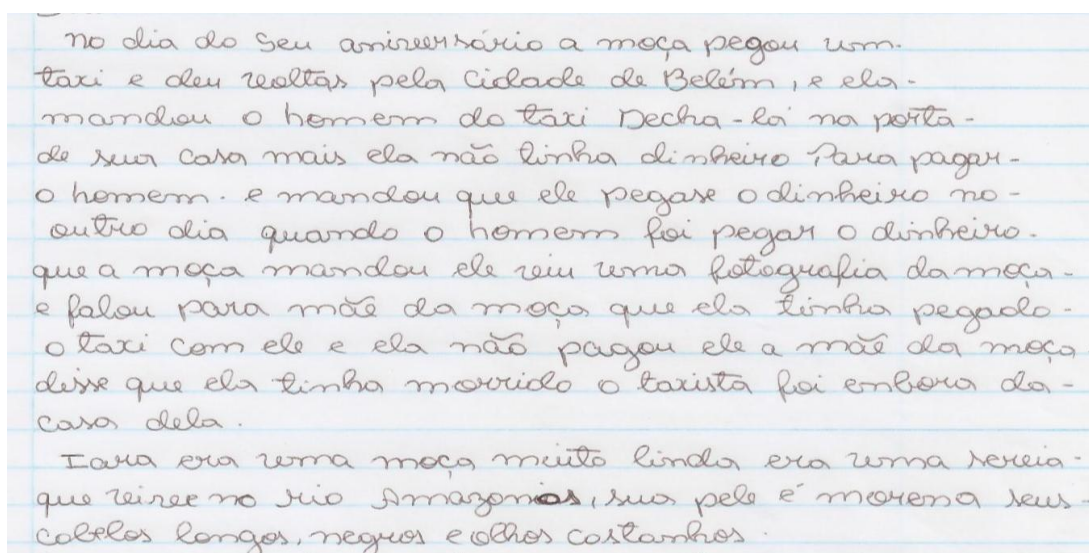 no dia do seu aniversário a moça pegou um.
taxi e deu voltas pela cidade de Belém, e ela-
mandou o homem do taxi Decha-la na porta-
de sua casa mais ela não tinha dinheiro Para pagar-
o homem. e mandou que ele pegase o dinheiro no-
outro dia quando o homem foi pegar o dinheiro.
que a moça mandou ele viu uma fotografia da moça-
e falou para mãe da moça que ela tinha pegado-
o taxi com ele e ela não pagou ele a mãe da moça
disse que ela tinha morrido o taxista foi embora da-
casa dela.
Iara era uma moça muito linda era uma sereia-
que vivee no rio Amazonas, sua pele é morena seus-
cabelos longos, negros e olhos castanhos.